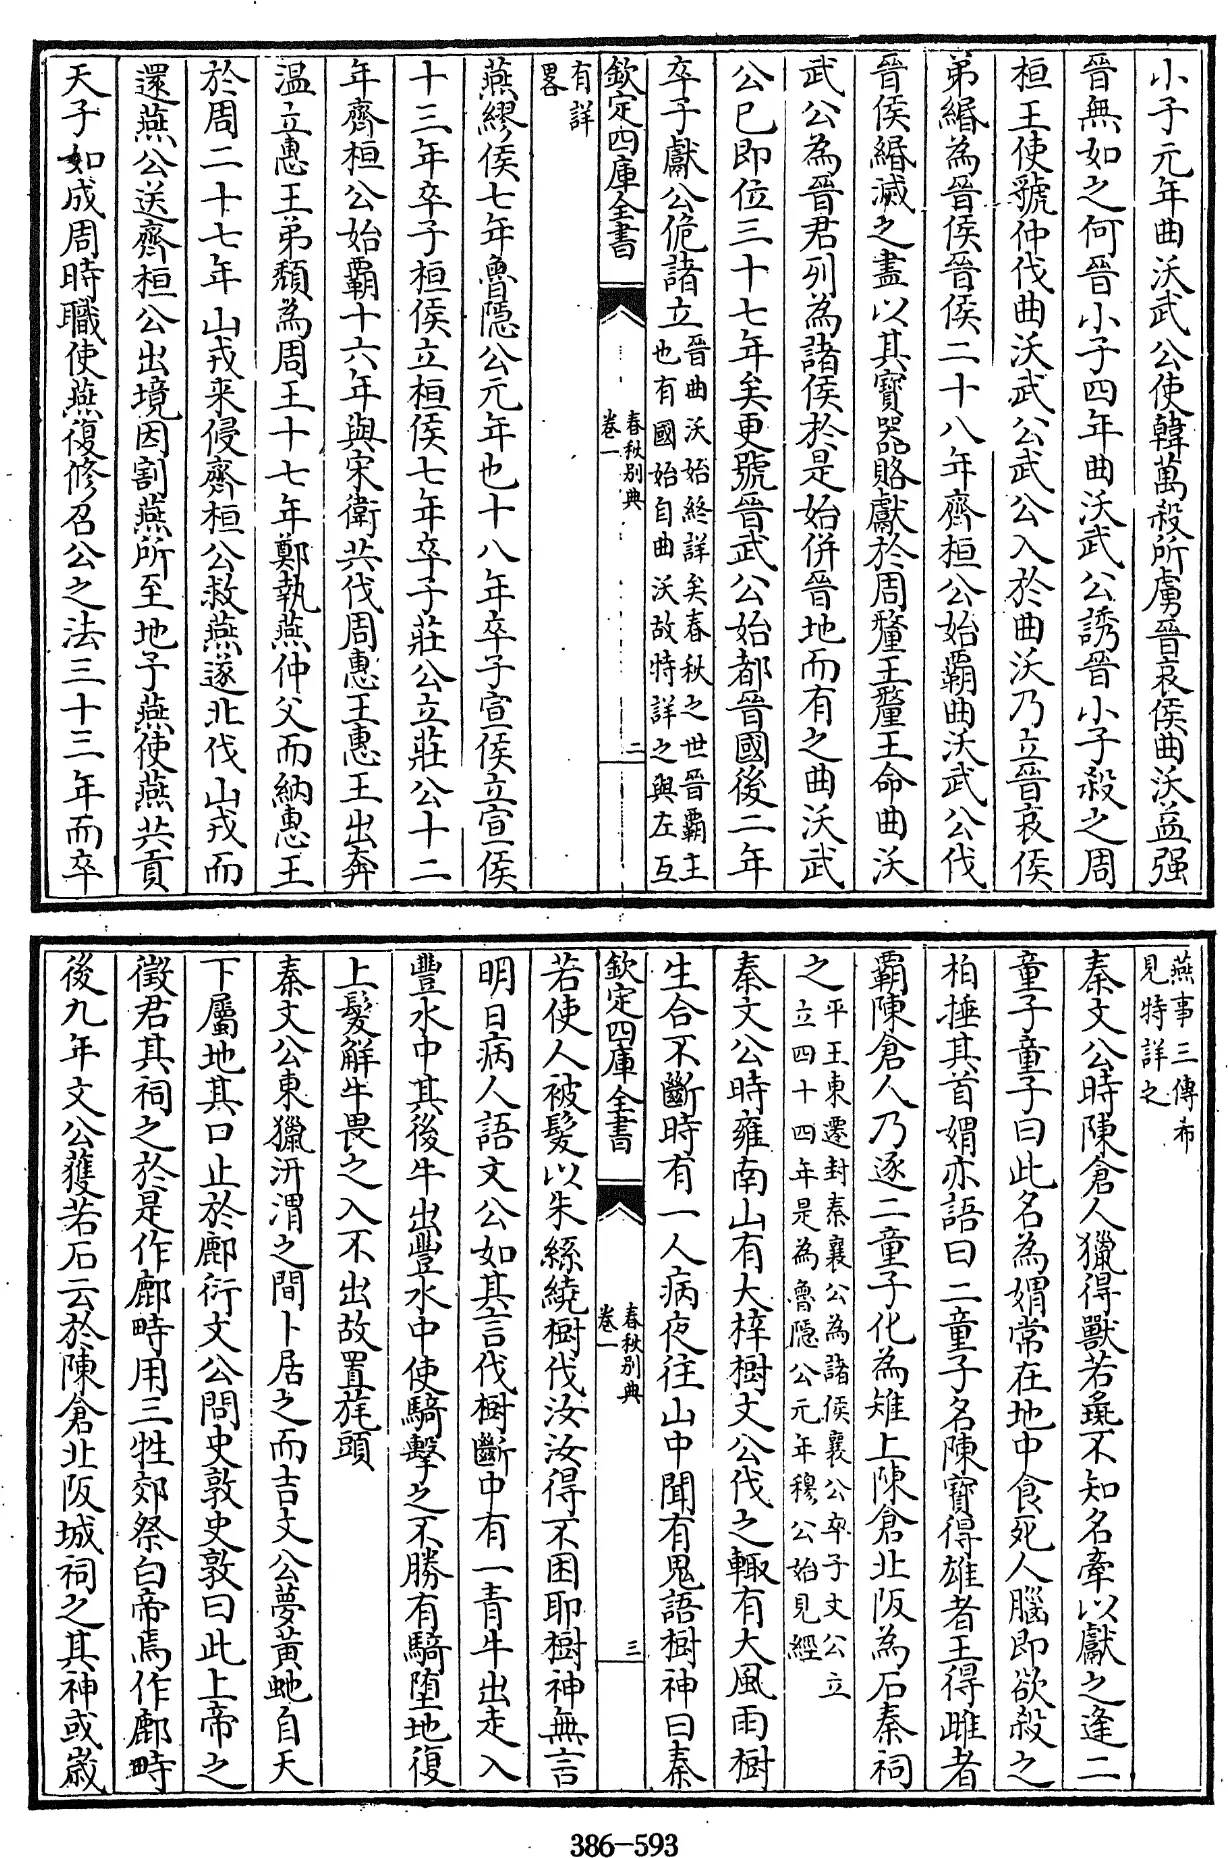 小子元年曲沃武公使韓萬殺所虜晉哀侯曲沃益强
晉無如之何晉小子四年曲沃武公誘晉小子殺之周
桓王使虢仲伐曲沃武公武公入於曲沃乃立晉哀侯
弟緡為晉侯晉侯二十八年齊桓公始霸曲沃武公伐
晉侯緡滅之盡以其寶器賂獻於周釐王釐王命曲沃
武公為晉君列為諸侯於是始併晉地而有之曲沃武
公已即位三十七年矣更號晉武公始都晉國後二年
卒子獻公佹諸立晉曲沃始終詳矣春秋之世晉霸主
也有國始自曲沃故特詳之與左互
欽定四庫全書
春秋别典
卷一
二
有詳
畧
燕繆侯七年魯隱公元年也十八年卒子宣侯立宣侯
十三年卒子桓侯立桓侯七年卒子莊公立莊公十二
年齊桓公始霸十六年與宋衛共伐周惠王惠王出奔
温立惠王弟頽為周王十七年鄭執燕仲父而納惠王
於周二十七年山戎来侵齊桓公救燕遂北伐山戎而
還燕公送齊桓公出境因割燕所至地予燕使燕共貢
天子如成周時職使燕復修召公之法三十三年而卒
燕事三傳希
見特詳之
秦文公時陳倉人獵得獸若彘不知名牽以獻之逢二
童子童子曰此名為媦常在地中食死人腦即欲殺之
柏捶其首媦亦語曰二童子名陳寳得雄者王得雌者
霸陳倉人乃逐二童子化為雉上陳倉北阪為石秦祠
之平王東遷封秦襄公為諸侯襄公卒子文公立
立四十四年是為魯隱公元年穆公始見經
秦文公時雍南山有大梓樹文公伐之輙有大風雨樹
生合不斷時有一人病夜往山中聞有鬼語樹神曰秦
欽定四庫全書
春秋别典
卷一
三
若使人被髮以朱絲繞樹伐汝汝得不困耶樹神無言
明日病人語文公如其言伐樹斷中有一青牛出走入
豐水中其後牛出豐水中使騎擊之不勝有騎堕地復
上髮解牛畏之入不出故置旄頭
秦文公東獵汧渭之間卜居之而吉文公夢黄虵自天
下屬地其口止於鄜衍文公問史敦史敦曰此上帝之
徵君其祠之於是作鄜畤用三牲郊祭白帝焉作鄜畤
後九年文公獲若石云於陳倉北阪城祠之其神或嵗
386-593